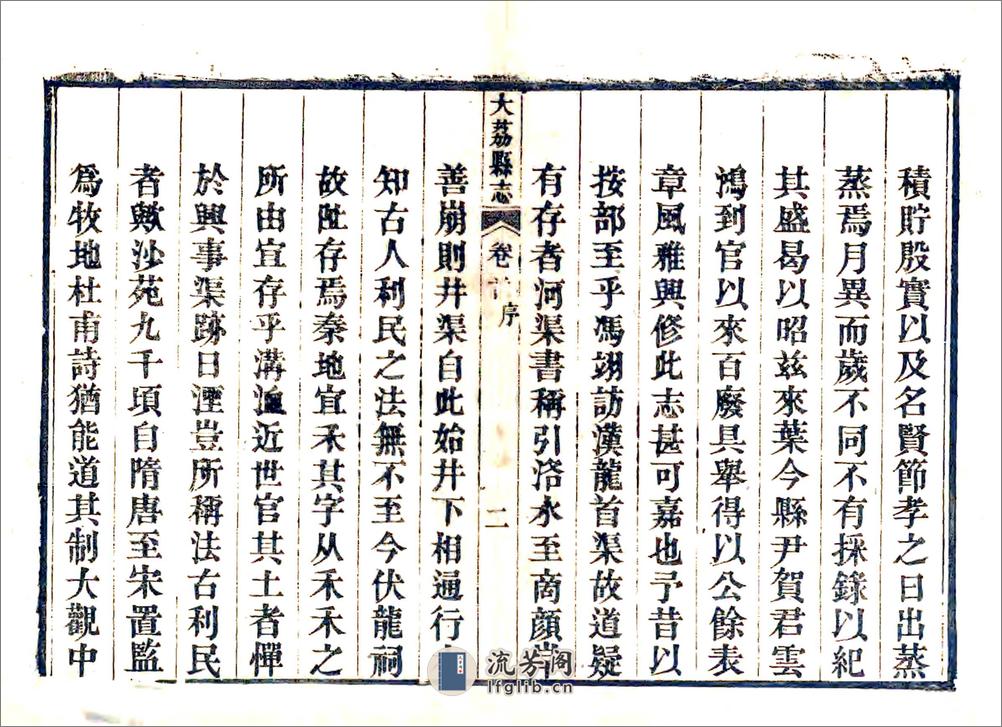 積貯殷實以及名賢節孝之日出蒸
蒸焉月異而歲不同不有採錄以紀
其盛曷以昭茲來葉今縣尹賀君雲
鴻到官以來百廢具舉得以公餘表
章風雅興修此志甚可嘉也予昔以
按部至乎馮翊訪漢龍首渠故道疑
有存者河渠書稱引洛水至商顏岸
大荔縣志 卷首 序 二
善崩則井渠自此始井下相通行
知古人利民之法無不至今伏龍祠
故阯存焉秦地宜禾其字从禾禾之
所由宜存乎溝洫近世官其土者憚
於興事渠跡日湮豈所稱法古利民
者歟沙苑九千頃自隋唐至宋置監
為牧地杜甫詩猶能道其制大觀中
流芳閣
lfglib.cn